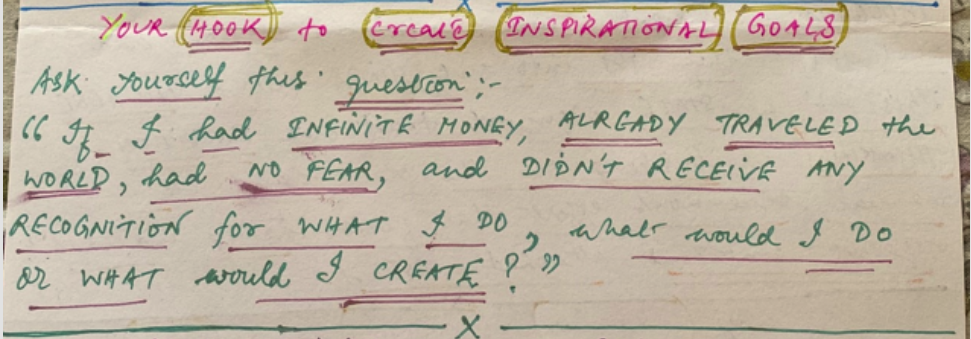 YOUR HOOK to Create INSPIRATIONAL GOALS
ASK yourself this question:-
"If I had INFINITE MONEY, ALREADY TRAVELED the
WORLD, had NO FEAR, and DIDN'T RECEIVE ANY
RECOGNITION for WHAT I DO, what would I DO
or WHAT would I CREATE?"
X